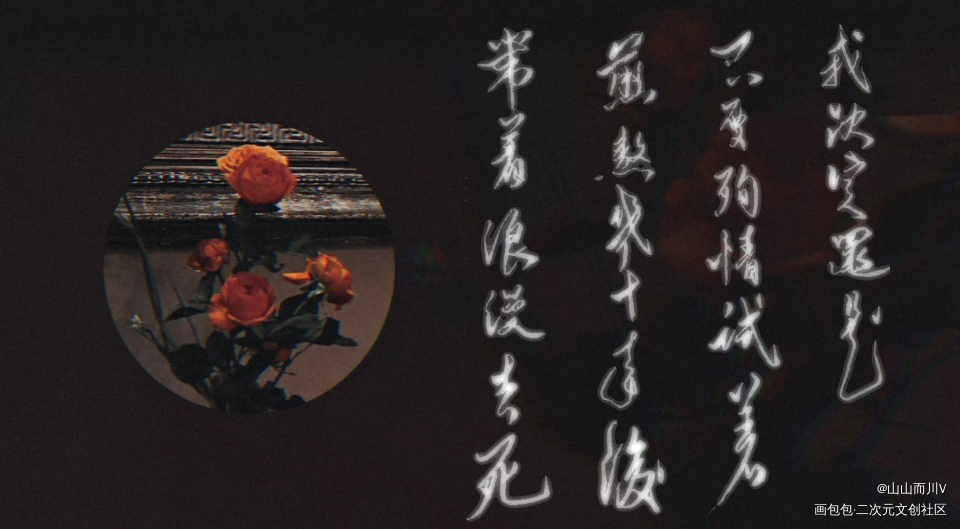 我决定还是
不要殉情试着
煎熬几十年后
带着浪漫去死
@山山而川V
画包包·二次元文创社区